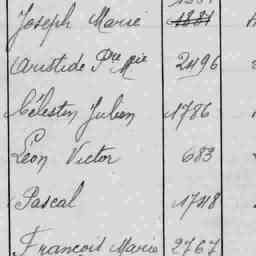 Joseph Marie 1881
Aristide Pre Mie 2496
Célestin Julien 1786
Léon Victor 683
Pascal 1748
François Marie 2767